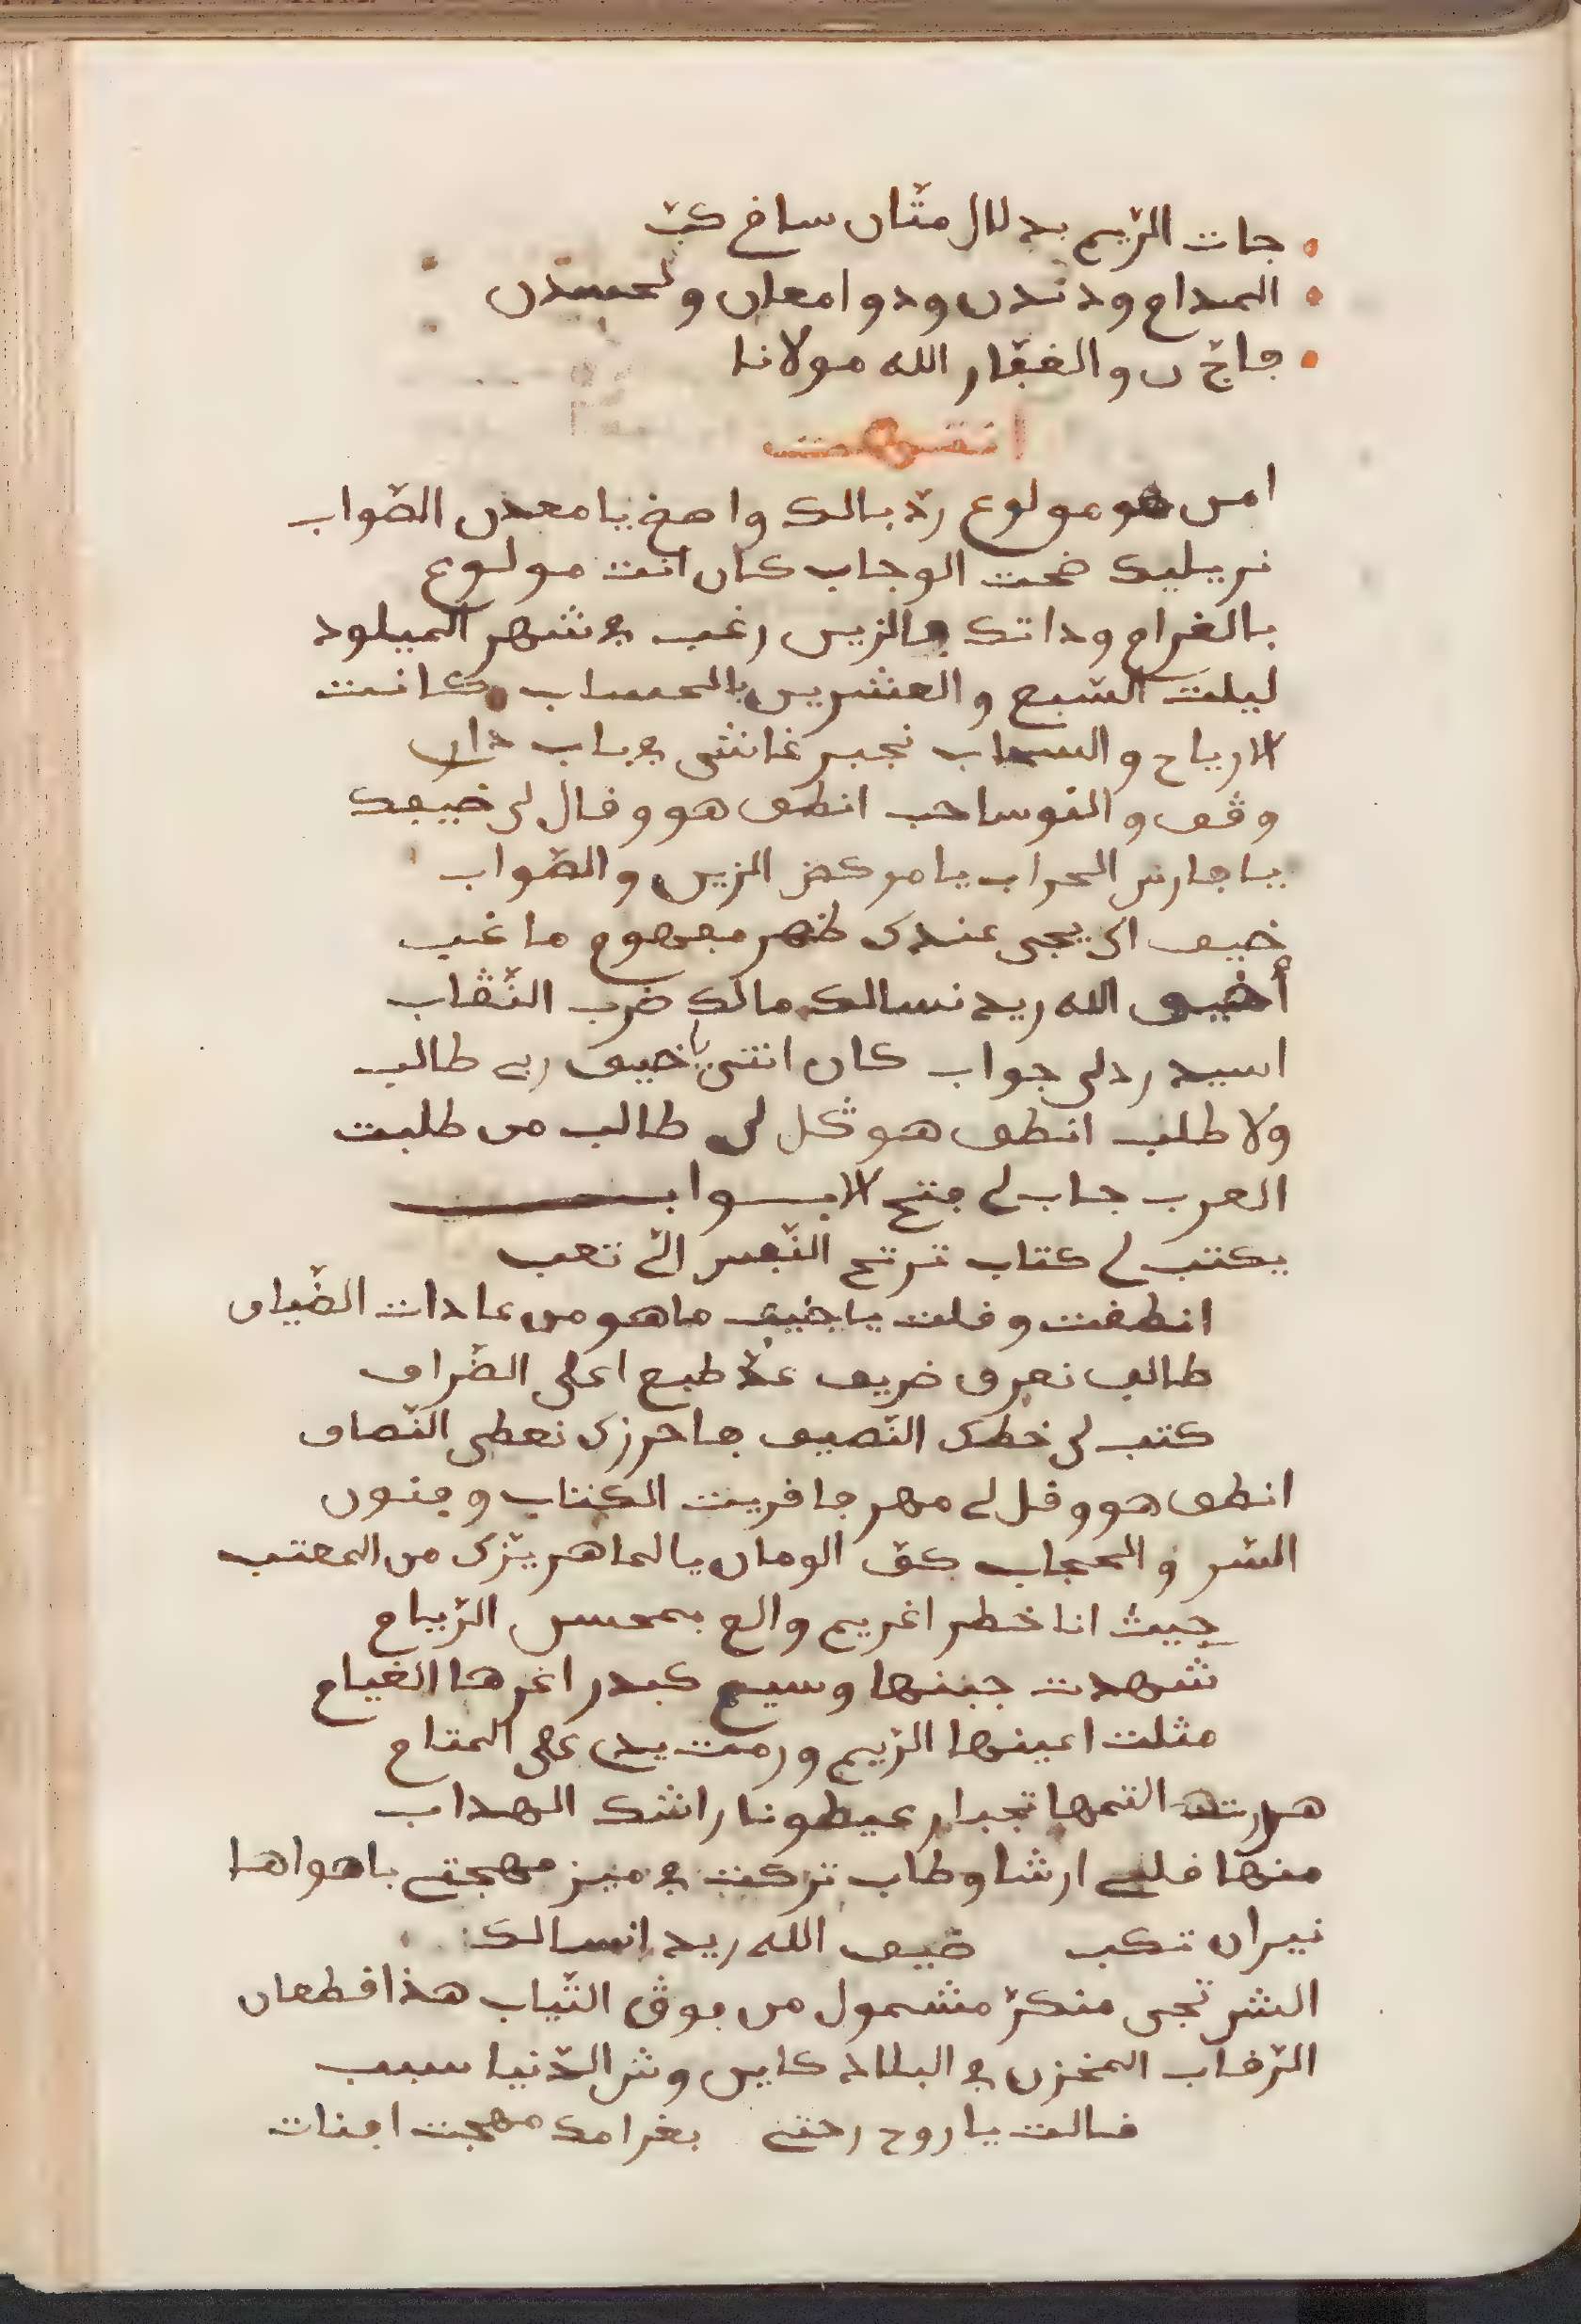 جات الريم بدلال متان ساخ كب
المدام ودندن ودوا معان ولحسدن
جاج ن والغفار الله مولانا
انتهت
امن هو مولوع رد بالك واصغ يا معدن الصواب
نريليك ضحت الوجاب كان انت مولوع
بالغرام وداتك فالزين رغب في شهر الميلود
ليلت السبع والعشرين بالحساب كانت
الارياح والسحاب نجبر غاشي في باب داري
وقف والقوساحب انطف هو وقال لي ضيفك
يا فارس الحراب يا مركض الزين والصواب
ضيف اك يجي عندك ظهر مفهوم ما غب
أضيف الله ريد نسالك مالك ضرب النقاب
اسيد رد لي جواب كان انتي يا ضيف ربي طالب
ولا طلب انطف هو ڭل لي طالب من طلبت
العرب جاب لي فتح الابواب
يكتب لي كتاب ترتح النفس الي تعب
انطفت وقلت يا ضيف ما هو من عادات الضياف
طالب نعرف ضريف عد طبع اعلى الضراف
كتب لي خطك النصيف ها حرزك نعطي النصاف
انطف هو وقل لي مهر فا قريت الكتاب وفنون
السر والحجاب كف الومان يا الماهر يزك من المعتب
حيث انا خطر اغريم والع بمحسن الريام
شهدت جبنها وسيم كبدر اغرها الغيام
مثلت اعينها الريم ورمت يدي على المتاح
التمها تجبار عيطونا راشك الهداب
منها قلبي ارشا وطاب تركت في ميز مهجتي باهواها
نيران تكب ضيف الله ريد انسالك
الشر تجي منكر مشمول من فوق الثياب هذا قطعان
الرقاب المخزن في البلاد كاين وش الدنيا سبب
قالت يا روح رحتي بغرامك مهجت افنات